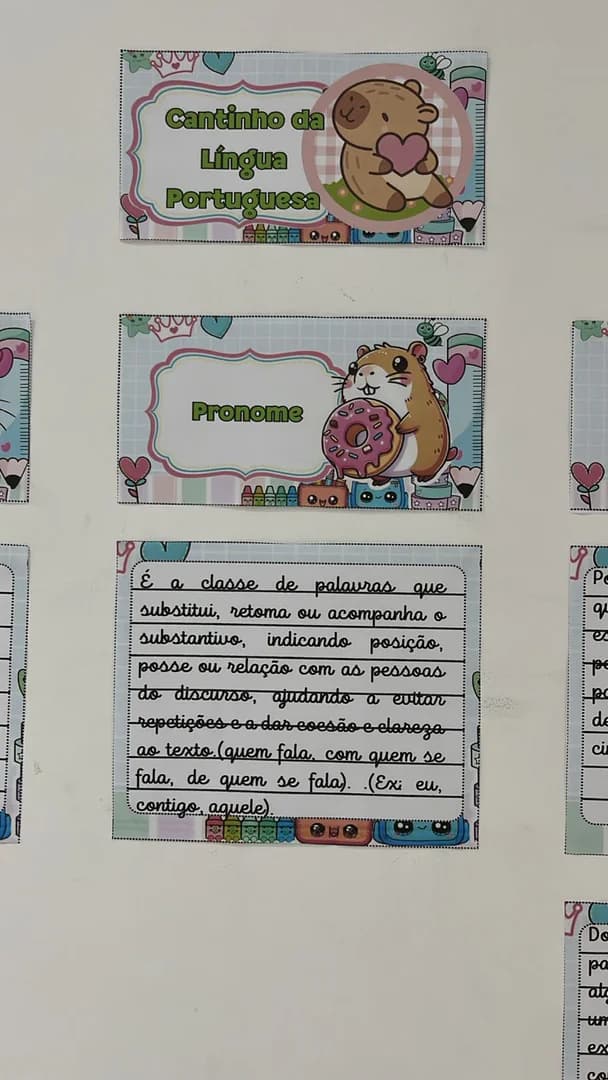 Cantinho da
Língua
Portuguesa
Pronome
É a classe de palavras que
substitui, retoma ou acompanha o
substantivo, indicando posição,
posse ou relação com as pessoas
do discurso, ajudando a evitar
repetições e a dar coesão e clareza
ao texto.(quem fala, com quem se
fala, de quem se fala). .(Ex: eu,
contigo, aquele).